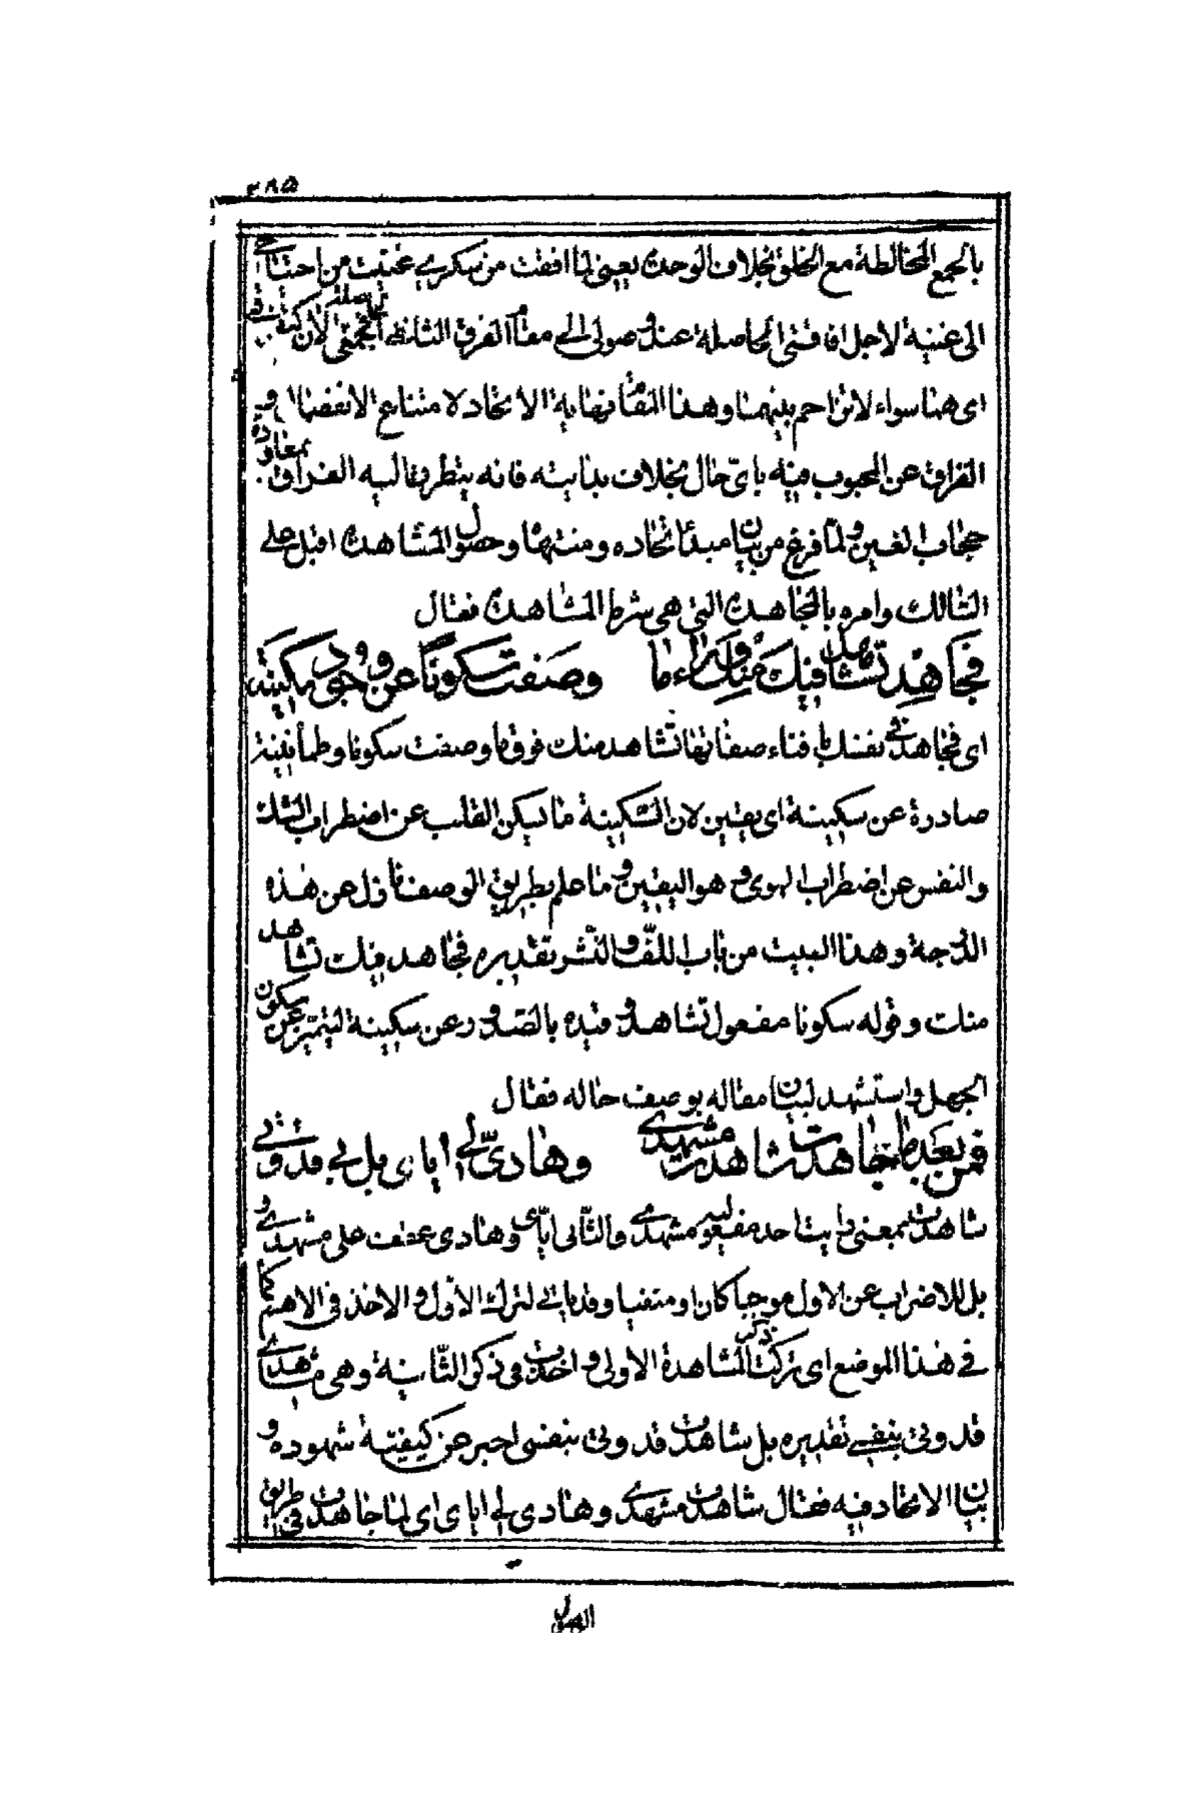 ٣٨٥
بالجمع المخالطة مع الخلق بخلاف الوحدة يعني لما افقت من سكري غنيت من احتياجي
الى غنية لاجل افاقتي الحاصلة عند وصولي الى مقام الفرق الثاني لان
اى هنا سواء لا تزاحم بينهما وهذا المقام نهاية الاتحاد لامتناع الانفصال و
الفراق عن المحبوب منه باىّ حال بخلاف بدايته فانه يتطرق اليه الفراق بمعاودة
حجاب الغين ولمّا فرغ من بيان مبدأ اتحاده ومنتهاه وحصول المشاهدة اقبل على
السالك وامره بالمجاهدة التي هى شرط المشاهدة فقال
فجاهد تشاهد فيك منك وراء ما وصفت سكونًا عن وجود سكينة
اى فجاهد في نفسك بافناء صفاتها تشاهد منك فوق ما وصفت سكونا وطمأنينة
صادرة عن سكينة اى يقين لان السّكينة ما يسكن القلب عن اضطراب الشك
والنفس عن اضطراب الهوى وهو اليقين وما علم بطريق الوصف نازل عن هذه
الدّرجة وهذا البيت من باب اللفّ والنّشر تقديره فجاهد فيك تشاهد
منك وقوله سكونا مفعول تشاهد وقيده بالصّدور عن سكينة ليتميّز عن سكون
الجهل واستشهد لبيان مقاله بوصف حاله فقال
فمن بعد ما جاهدت شاهدت مشهدي وهاديّ لي اياى بل بي قدوتي
شاهدت بمعنى رايت احد مفعوليه مشهدي والثّاني ايّاى وهادى عطف على مشهدي و
بل للاضراب عن الاول موجبا كان او منفيا وقد ياتي لترك الاوّل والاخذ في الاهم كما
في هذا الموضع اى تركت ذكر المشاهدة الاولى واخذت في ذكر الثّانية وهى مشاهدة
قدوتي بنفسي تقديره بل شاهدت قدوتي بنفسي اخبر عن كيفيّة شهوده و
بيان الاتحاد فيه فقال شاهدت مشهدي وهادى لي اياى اى لما جاهدت في طريق